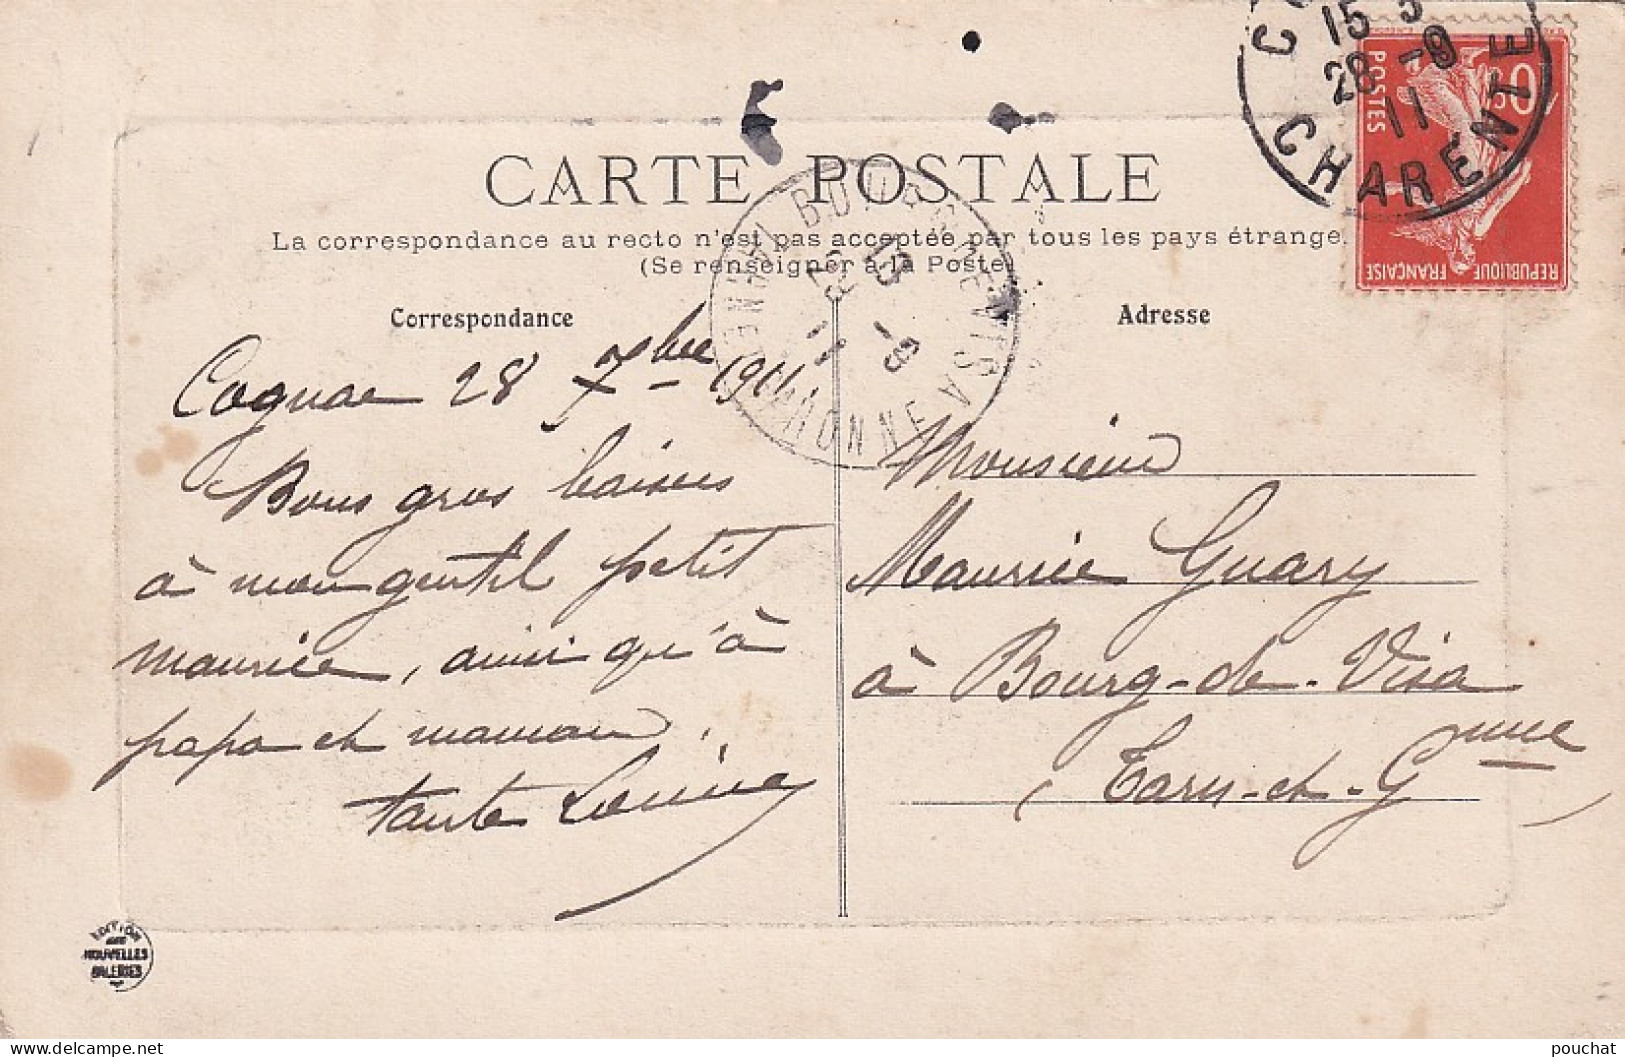 CARTE POSTALE
La correspondance au recto n'est pas acceptée par tous les pays étrange.
(Se renseigner à la Poste)
Correspondance
Cognac 28 7bre 1911
Bons gros baisers
à mon gentil petit
Maurice, ainsi qu'à
papa et maman.
tante Louise
Adresse
Monsieur
Maurice Guary
à Bourg-de-Visa
(Tarn-et-Gnne
15
28 -9
11
CHARENTE
POSTES
REPUBLIQUE FRANÇAISE
BOURG DE VISA
-9
11
EDITION
NOUVELLES
GALERIES
pouchat